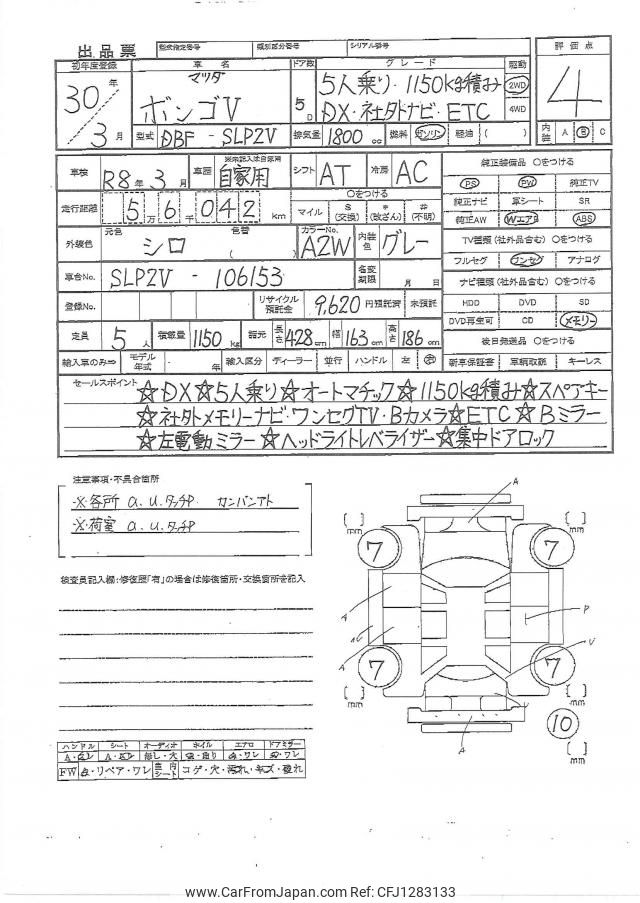 出品票 型式指定番号 類別区分番号 シリアル番号
初年度登録 車名 ドア数 グレード 駆動 評価点
30年 マツダ 5人乗り・1150kg積み 2WD 4
ボンゴV 5D DX・社外ナビ・ETC 4WD
3月 型式 DBF - SLP2V 排気量 1800 cc 燃料 ガソリン・軽油 ( ) 内装 A B C
車検 R8年3月 車歴 自家用 シフト AT 冷房 AC 純正装備品 ○をつける
PS PW 純正TV
走行距離 5万6千042km ○をつける マイル $(交換) *(改ざん) #(不明) 純正ナビ 革シート SR
純正AW WエアB ABS
外装色 元色 シロ 色替 ( ) カラーNo. A2W 内装色 グレー TV種類(社外品含む) ○をつける
フルセグ ワンセグ アナログ
車台No. SLP2V - 106153 名変期限 月 日 ナビ種類(社外品含む) ○をつける
登録No. リサイクル預託金 9,620 円預託済 未預託 HDD DVD SD
DVD再生可 CD メモリー
定員 5人 積載量 1150kg 諸元 長さ 428cm 幅 163cm 高さ 186cm 後日発送品 ○をつける
輸入車のみ⇒ モデル年式 年 輸入区分 ディーラー・並行 ハンドル 左 右 新車保証書 車輌取説 キーレス
セールスポイント ☆DX☆5人乗り☆オートマチック☆1150kg積み☆スペアキー
☆社外メモリーナビ・ワンセグTV・Bカメラ☆ETC☆Bミラー
☆左電動ミラー☆ヘッドライトレベライザー☆集中ドアロック
注意事項・不具合箇所
※各所 a.u.タッチP カンバンアト
※荷室 a.u.タッチP
検査員記入欄:修復歴「有」の場合は修復箇所・交換箇所を記入
A
[ ] mm 7 7 [ ] mm
A
AU
A
P
U
7 7
[ ] mm [ ] mm
A
10
[ ] mm
ハンドル シート オーディオ ホイル エアロ ドアミラー
FW ・リペア・ワレ 室内シート コゲ・穴・汚れ・キズ・破れ
www.CarFromJapan.com Ref: CFJ1283133